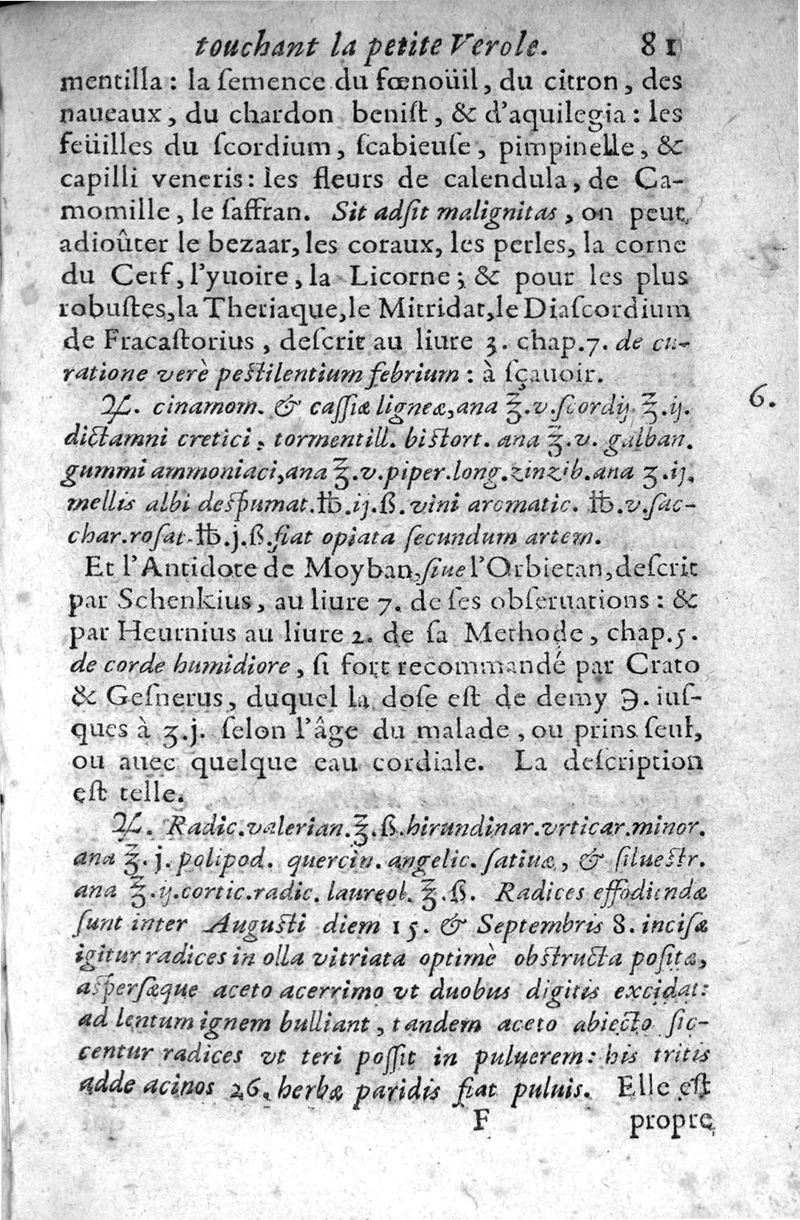 touchant la petite Verole. 81
mentilla : la ſemence du fœnoüil, du citron, des
naueaux, du chardon beniſt, & d'aquilegia : les
feüilles du ſcordium, ſcabieuſe, pimpinelle, &
capilli veneris : les fleurs de calendula, de Ca-
momille, le ſaffran. Sit adſit malignitas, on peut
adioûter le bezaar, les coraux, les perles, la corne
du Cerf, l'yuoire, la Licorne; & pour les plus
robuſtes, la Theriaque, le Mitridat, le Diaſcordium
de Fracaſtorius, deſcrit au liure 3. chap.7. de cu-
ratione verè peſtilentium febrium : à ſçauoir.
℞. cinamom. & caſſiæ ligneæ, ana ℥.v. ſcordij ℥.ij.
dictamni cretici, tormentill. biſtort. ana ℥.v. galban.
gummi ammoniaci, ana ℥.v. piper. long. zinzib. ana ʒ.ij.
mellis albi deſpumat. ℔.ij.ß. vini aromatic. ℔.v. ſac-
char. roſat. ℔.j.ß. fiat opiata ſecundum artem.
6.
Et l'Antidote de Moyban, ſiue l'Orbietan, deſcrit
par Schenkius, au liure 7. de ſes obſeruations : &
par Heurnius au liure 2. de ſa Methode, chap.5.
de corde humidiore, ſi fort recommandé par Crato
& Geſnerus, duquel la doſe eſt de demy ℈. iuſ-
ques à ʒ.j. ſelon l'âge du malade, ou prins ſeul,
ou auec quelque eau cordiale. La deſcription
eſt telle.
℞. Radic. valerian. ℥.ß. hirundinar. vrticar. minor.
ana ℥.j. polipod. quercin. angelic. ſatiuæ, & ſilueſtr.
ana ℥.ij. cortic. radic. laureol. ℥.ß. Radices effodiendæ
ſunt inter Auguſti diem 15. & Septembris 8. inciſæ
igitur radices in olla vitriata optimè obſtructa poſitæ,
aſperſæque aceto acerrimo vt duobus digitis excidat:
ad lentum ignem bulliant, tandem aceto abiecto ſic-
centur radices vt teri poſſit in puluerem : his tritis
adde acinos 26. herbæ paridis fiat puluis. Elle eſt
F propre